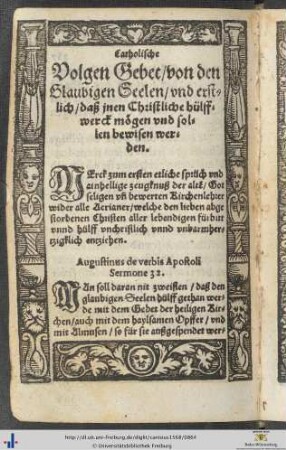 Catholische
Volgen Gebet/von den
Glaubigen Seelen/vnd erst-
lich/daß jnen Christliche hülff-
werck mögen vnd sol-
len bewisen wer-
den.
MErck zum ersten etliche sprüch vnd
ainhellige zeugknuß der alte/Got
seligen vñ bewerten Kirchenlehrer
wider alle Aerianer/welche den lieben abge
storbenen Christen aller lebendigen fürbit
vnnd hülff vnchristlich vnnd vnbarmher-
tzigklich entziehen.
Augustinus de verbis Apostoli
Sermone 32.
MAn soll daran nit zweiflen/daß den
glaubigen Seelen hülff gethan wer-
de mit dem Gebet der heiligen Kir-
chen/auch mit dem haylsamen Opffer/vnd
mit Almusen/so für sie außgespendet wer-
http://dl.ub.uni-freiburg.de/diglit/canisius1569/0864
© Universitätsbibliothek Freiburg